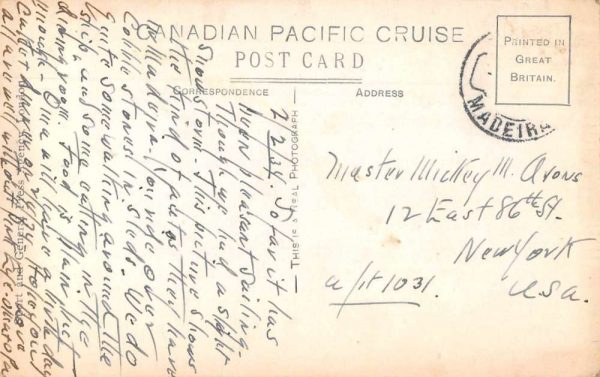 CANADIAN PACIFIC CRUISE
POST CARD
CORRESPONDENCE
ADDRESS
PRINTED IN
GREAT
BRITAIN.
MADEIRA
THIS IS A REAL PHOTOGRAPH
2/2/34. So far it has
been pleasant sailing -
Though we had a slight
Snow storm. This picture shows
the kind of autos they have
in Madeira, you ride over
Cobble stones in sleds. We do
quite some walking around the
ship, and some eating in the
dining room. Food is plain but
enough - Oma will leave a birthday
on 2/4/34
a farewell without
and General Press
Master Mickey M. Arons
12 East 86th St.
New York
a/pt 1031. U.S.a.